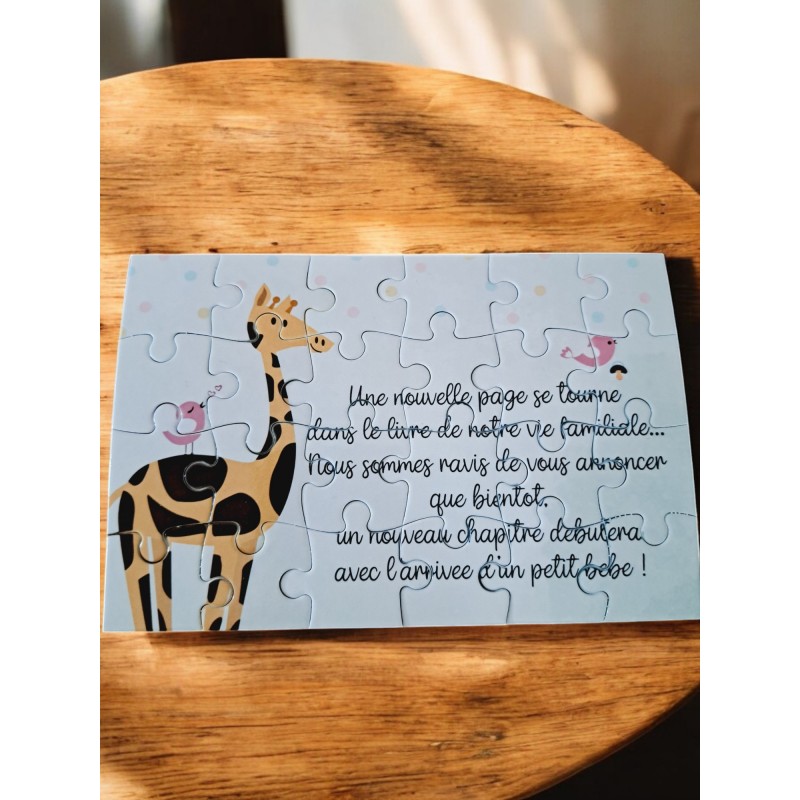 Une nouvelle page se tourne
dans le livre de notre vie familiale...
Nous sommes ravis de vous annoncer
que bientot,
un nouveau chapitre debutera
avec l'arrivee d'un petit bebe !